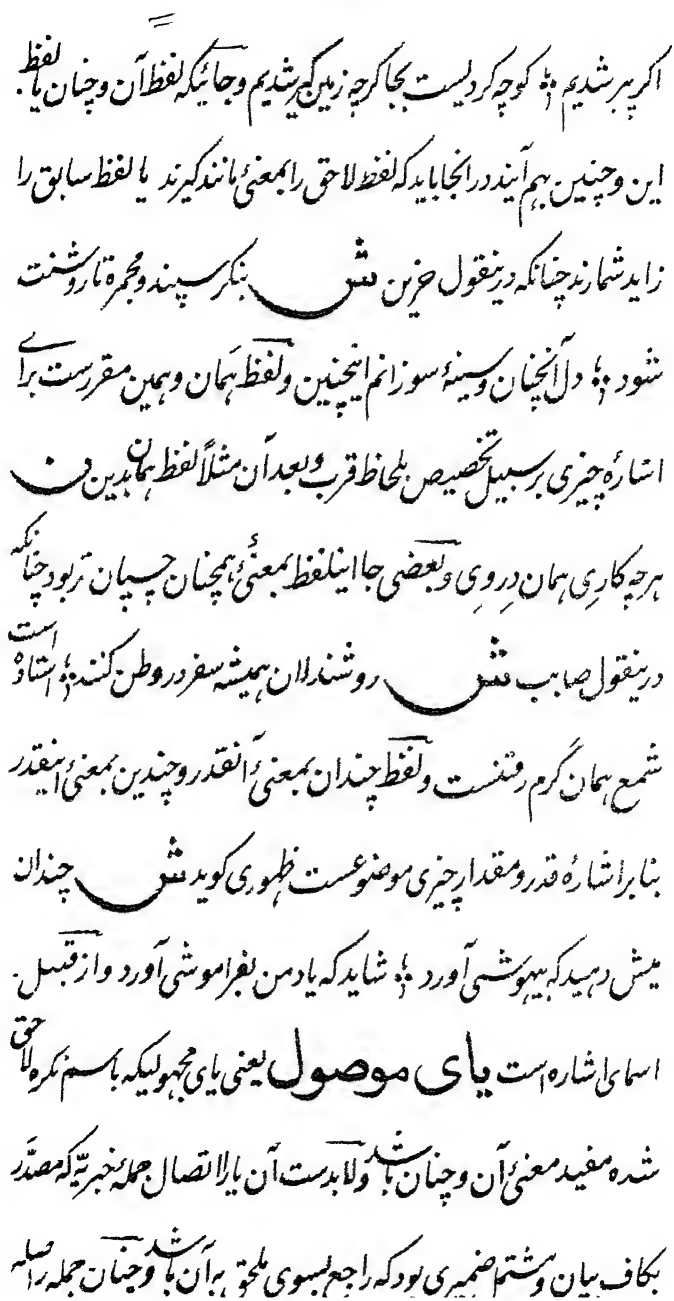 اکر پیر شدیم ؛ کوچه کردیست بجا کرچه زمین کیر شدیم و جائیکه لفظ آن و چنان یا لفظ
این و چنین بهم آیند درانجا باید که لفظ لاحق را بمعنئ مانند کیرند یا لفظ سابق را
زاید شمارند چنانکه درینقول حزین ش بنکر سپند و مجمره تا روشنت
شود ؛ دل آنچنان و سینهٔ سوزانم اینچنین و لفظ همان و همین مقررست برای
اشارهٔ چیزی بر سبیل تخصیص بلحاظ قرب و بعد آن مثلاً لفظ همان بدین ن
هرچه کاری همان دِروِی و بعضی جا اینلفظ بمعنئ همچنان چسپان تر بود چنانکه
درینقول صایب ش روشندلان همیشه سفر در وطن کنند ؛ استاده است
شمع همان گرم رفتنست و لفظ چندان بمعنئ آنقدر و چندین بمعنئ اینقدر
بنابر اشارهٔ قدر و مقدار چیزی موضوعست ظهوری کوید ش چندان
میش دهید که بیهوشی آورد ؛ شاید که یاد من بفراموشی آورد و از قبیل
اسمای اشاره است یای موصول یعنی یای مجهولیکه باسم نکره لاحق
شده مفید معنئ آن و چنان باشد و لابدست آن یا را اتصال جملهٔ خبریّه که مصدَّر
بکاف بیان و مشتمل ضمیری بود که راجع بسوی ملحق به آن باشد و چنان جمله را صله